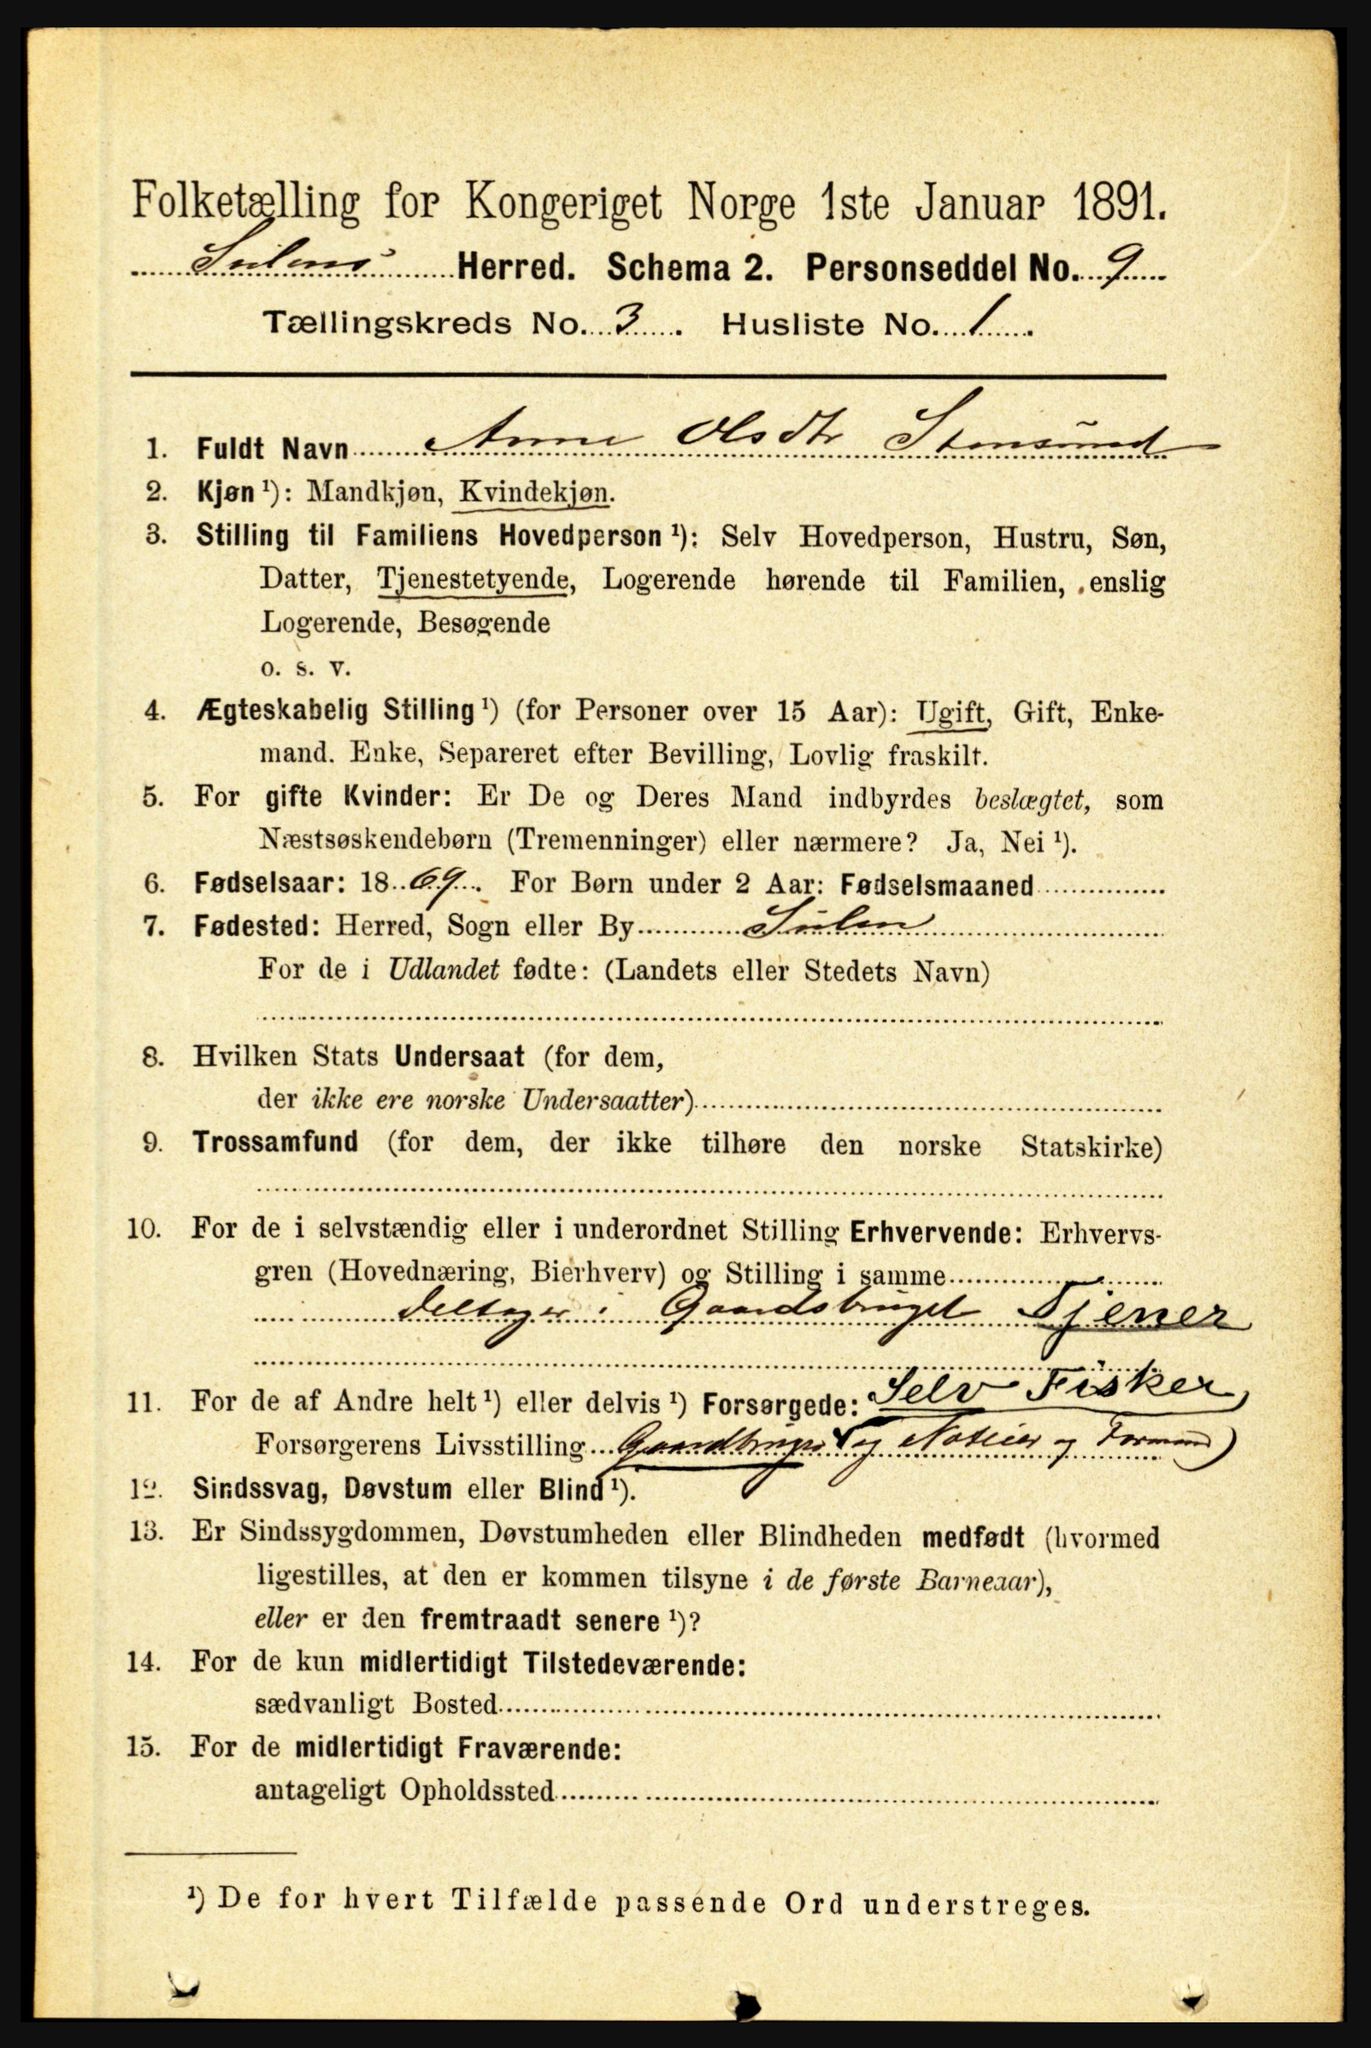 Folketælling for Kongeriget Norge 1ste Januar 1891.
Sulens Herred. Schema 2. Personseddel No. 9
Tællingskreds No. 3. Husliste No. 1.
1. Fuldt Navn Anne Olsdtr Stensund
2. Kjøn ¹): Mandkjøn, Kvindekjøn.
3. Stilling til Familiens Hovedperson ¹): Selv Hovedperson, Hustru, Søn,
Datter, Tjenestetyende, Logerende hørende til Familien, enslig
Logerende, Besøgende
o. s. v.
4. Ægteskabelig Stilling ¹) (for Personer over 15 Aar): Ugift, Gift, Enke-
mand. Enke, Separeret efter Bevilling, Lovlig fraskilt.
5. For gifte Kvinder: Er De og Deres Mand indbyrdes beslægtet, som
Næstsøskendebørn (Tremenninger) eller nærmere? Ja, Nei ¹).
6. Fødselsaar: 1869. For Børn under 2 Aar: Fødselsmaaned
7. Fødested: Herred, Sogn eller By Sulen
For de i Udlandet fødte: (Landets eller Stedets Navn)
8. Hvilken Stats Undersaat (for dem,
der ikke ere norske Undersaatter)
9. Trossamfund (for dem, der ikke tilhøre den norske Statskirke)
10. For de i selvstændig eller i underordnet Stilling Erhvervende: Erhvervs-
gren (Hovednæring, Bierhverv) og Stilling i samme
deltager i Gaardsbruget Tjener
11. For de af Andre helt ¹) eller delvis ¹) Forsørgede: Selv Fisker
Forsørgerens Livsstilling og og Formand)
12. Sindssvag, Døvstum eller Blind ¹).
13. Er Sindssygdommen, Døvstumheden eller Blindheden medfødt (hvormed
ligestilles, at den er kommen tilsyne i de første Barneaar),
eller er den fremtraadt senere ¹)?
14. For de kun midlertidigt Tilstedeværende:
sædvanligt Bosted
15. For de midlertidigt Fraværende:
antageligt Opholdssted
¹) De for hvert Tilfælde passende Ord understreges.